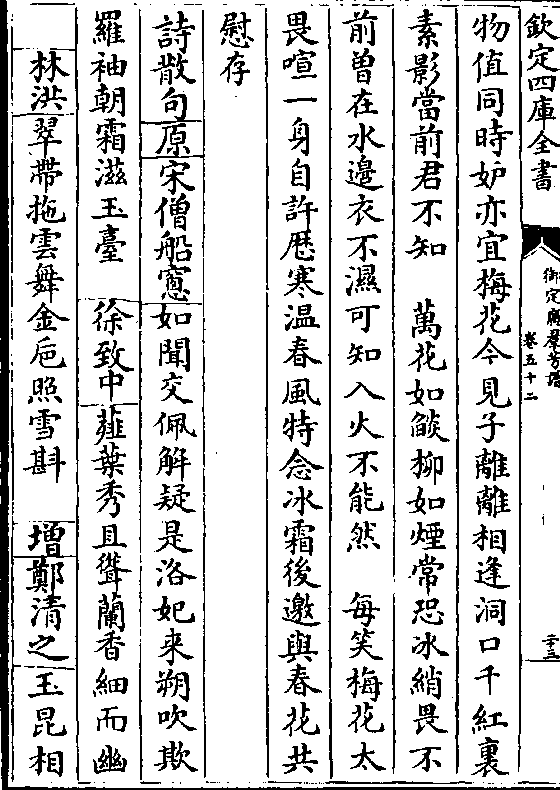 欽定四庫全書
御定廣羣芳譜
卷五十二
二十三
物值同時妒亦宜梅花今見子離離相逢洞口千紅裏
素影當前君不知　萬花如燄柳如煙常恐冰綃畏不
前曽在水邊衣不濕可知入火不能然　每笑梅花太
畏喧一身自許歴寒温春風特念冰霜後邀與春花共
慰存
詩散句原宋僧船窻如聞交佩解疑是洛妃来朔吹欺
羅袖朝霜滋玉臺　徐致中薤葉秀且聳蘭香細而幽
林洪翠帶拖雲舞金巵照雪斟　增鄭清之玉昆相